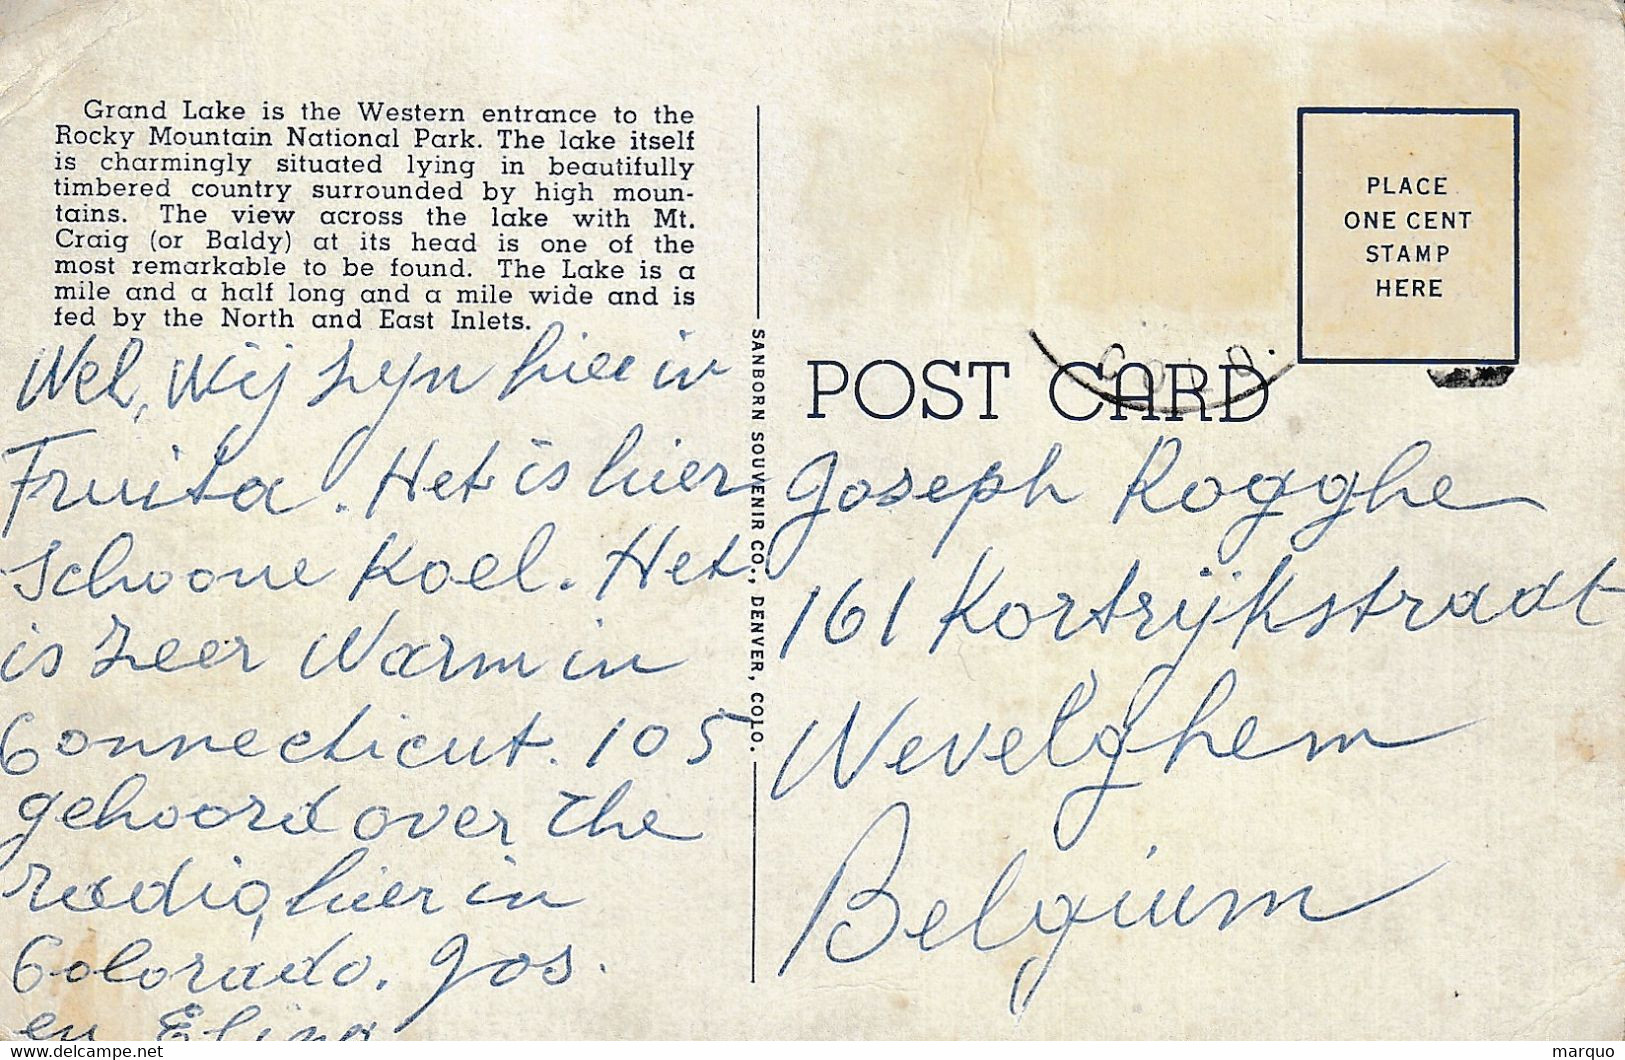 Grand Lake is the Western entrance to the
Rocky Mountain National Park. The lake itself
is charmingly situated lying in beautifully
timbered country surrounded by high moun-
tains. The view across the lake with Mt.
Craig (or Baldy) at its head is one of the
most remarkable to be found. The Lake is a
mile and a half long and a mile wide and is
fed by the North and East Inlets.
Wel, Wij zyn hier in
Fruita. Het is hier
schoone Koel. Het
is zeer Warm in
Connecticut. 105
gehoord over the
radio, hier in
Colorado. Jos.
en Elina
SANBORN SOUVENIR CO., DENVER, COLO.
PLACE
ONE CENT
STAMP
HERE
COLO.
POST CARD
Joseph Rogghe
161 Kortrijkstraat
Wevelghem
Belgium
https://www.delcampe.net
marquo